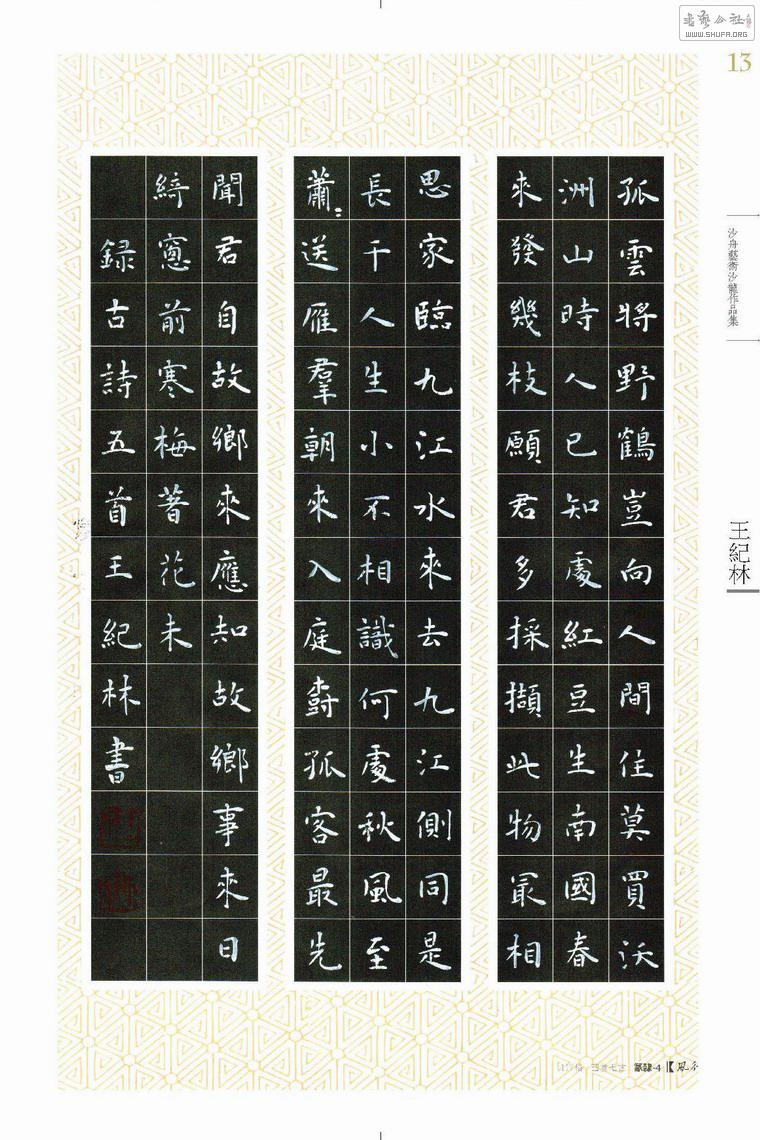 書藝公社
WWW.SHUFA.ORG
13
沙舟藝術沙龍作品集
王紀林
孤雲將野鶴豈向人間住莫買沃
洲山時人已知處紅豆生南國春
來發幾枝願君多採擷此物冣相
思家臨九江水來去九江側同是
長干人生小不相識何處秋風至
蕭〻送雁羣朝來入庭樹孤客最先
聞君自故鄉來應知故鄉事來日
綺窻前寒梅著花未
録古詩五首王紀林書